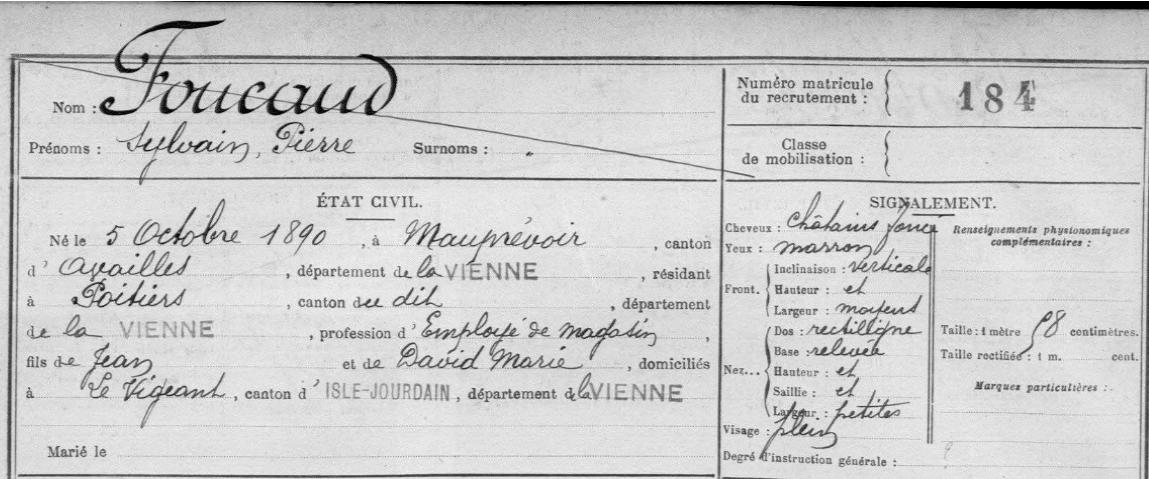 Nom : Foucaud
Prénoms : Sylvain, Pierre Surnoms : .
Numéro matricule du recrutement : { 184
Classe de mobilisation : {
ÉTAT CIVIL.
Né le 5 Octobre 1890, à Mauprévoir, canton
d'Availles, département de la VIENNE, résidant
à Poitiers, canton du dit, département
de la VIENNE, profession d'Employé de magasin,
fils de Jean et de David Marie, domiciliés
à Le Vigeant, canton d'ISLE-JOURDAIN, département de la VIENNE
Marié le
SIGNALEMENT.
Cheveux : châtains foncé
Yeux : marron
Front. { Inclinaison : verticale
Hauteur : et
Largeur : moyens
Nez... { Dos : rectiligne
Base : relevée
Hauteur : et
Saillie : et
Largeur : petites
Visage : plein
Degré d'instruction générale :
Renseignements physionomiques complémentaires :
Taille : 1 mètre 58 centimètres.
Taille rectifiée : 1 m. cent.
Marques particulières :